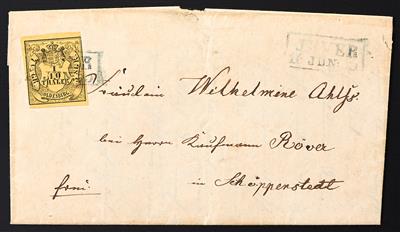 1/10
THALER
OLDENBURG
JEVER
JUN:
Fräulein Wilhelmine Ahlfs.
bei Herrn Kaufmann Röver
frei.
in Schöppenstedt